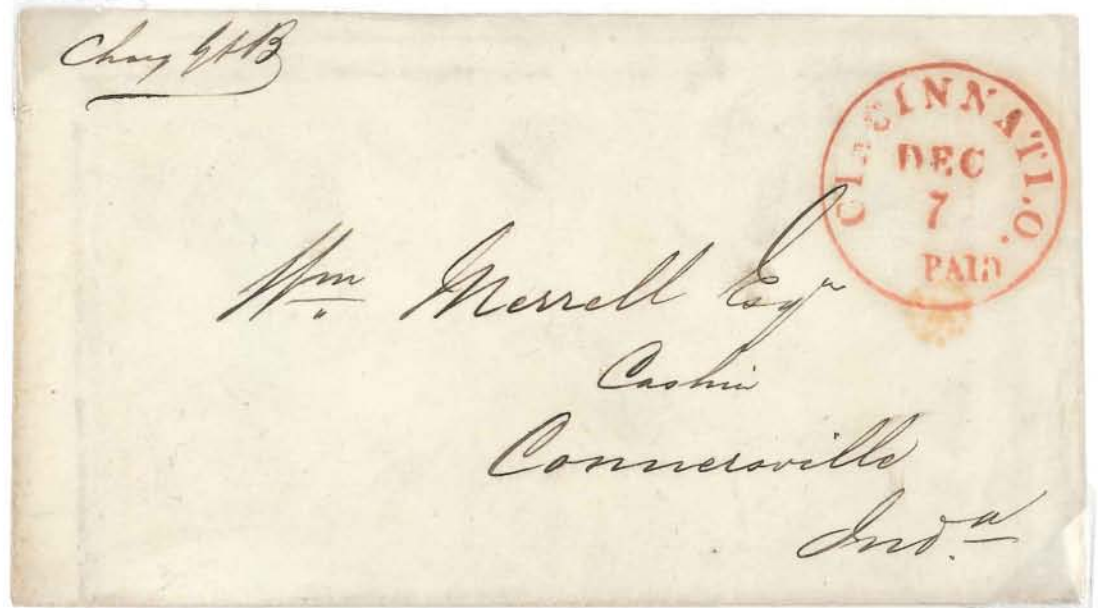 Chay
CINCINNATI.O.
DEC
7
PAID
Wm Merrell Esqr
Cashier
Connersville
Inda